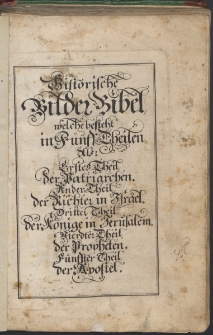 Historische
Bilder Bibel
welche besteht
in Fünff Theilen
Als:
Erstes Theil
der Patriarchen.
Ander Theil
der Richter in Israel.
Dritter Theil
der Könige in Jerusalem.
Vierdter Theil
der Propheten.
Fünffter Theil
der Apostel.